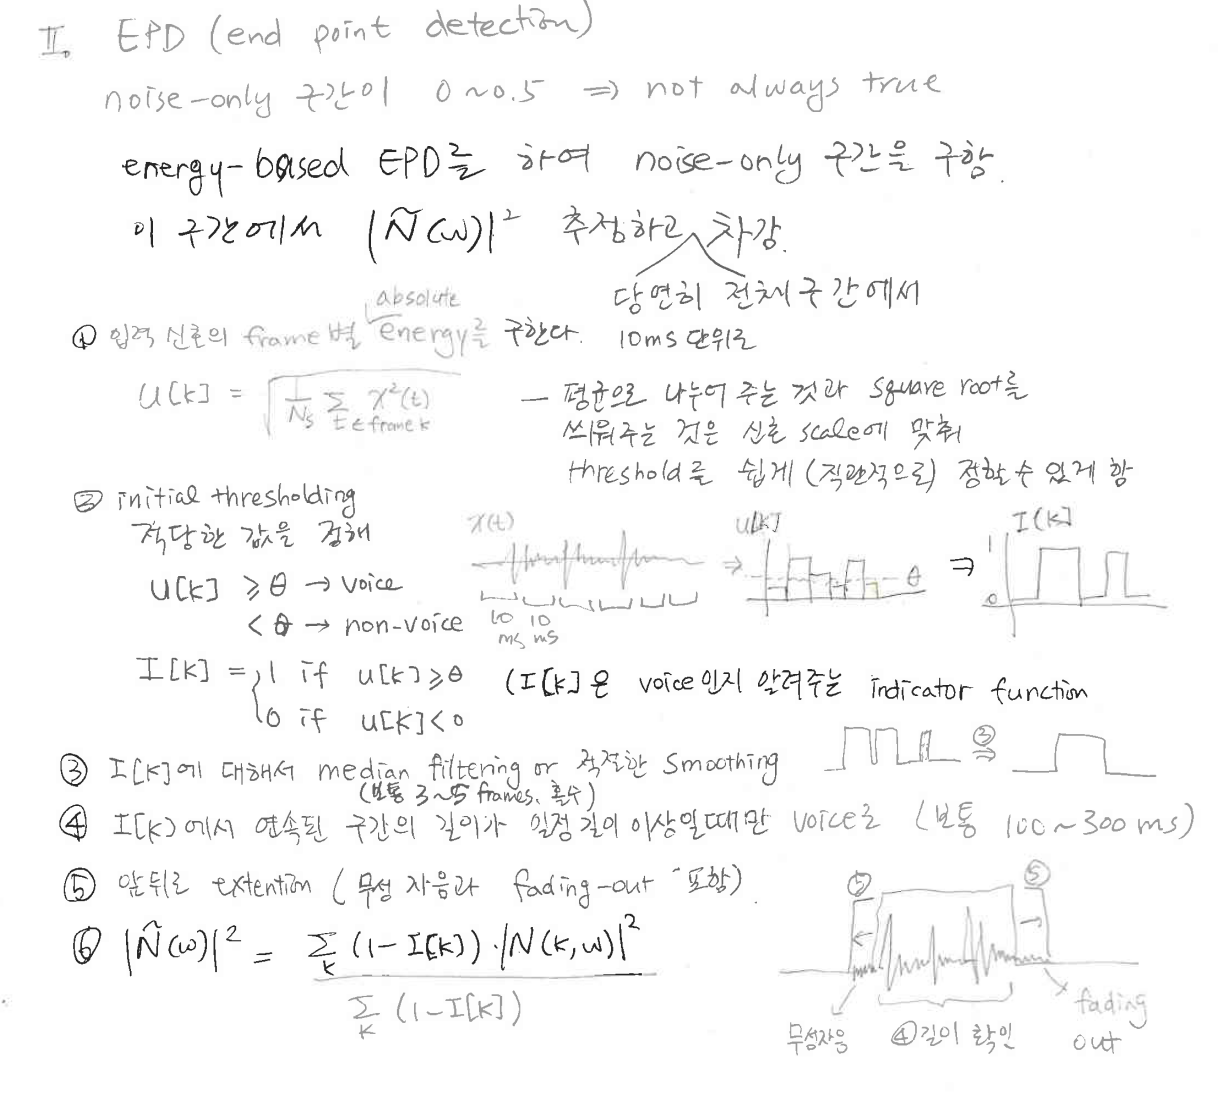 II. EPD (end point detection)
noise-only 구간이 0~0.5 ⇒ not always true
energy-based EPD를 하여 noise-only 구간을 구함.
이 구간에서 |Ñ(ω)|² 추정하고 차감.
당연히 전체구간에서
absolute
① 입력 신호의 frame별 energy를 구한다. 10ms 단위로
U[k] = √(1/Ns Σ_{t∈frame k} x²(t))
— 평균으로 나누어 주는 것과 square root를
씌워주는 것은 신호 scale에 맞춰
threshold를 쉽게 (직관적으로) 정할 수 있게 함
② initial thresholding
적당한 값을 정해
x(t) ⇒ U[k] θ ⇒ I[k] 1 0
U[k] ≥ θ → voice
< θ → non-voice
10 ms 10 ms
I[k] = { 1 if u[k] ≥ θ
0 if u[k] < 0
(I[k]은 voice인지 알려주는 indicator function
③ I[k]에 대해서 median filtering or 적절한 smoothing
(보통 3~5 frames, 홀수)
③ ⇒
④ I[k]에서 연속된 구간의 길이가 일정 길이 이상일때만 voice로 (보통 100~300 ms)
⑤ 앞뒤로 extention (무성 자음과 fading-out 포함)
⑤ ⑤
⑥ |Ñ(ω)|² = Σ_k (1-I[k])·|N(k,ω)|² / Σ_k (1-I[k])
무성자음 ④길이 확인 fading out